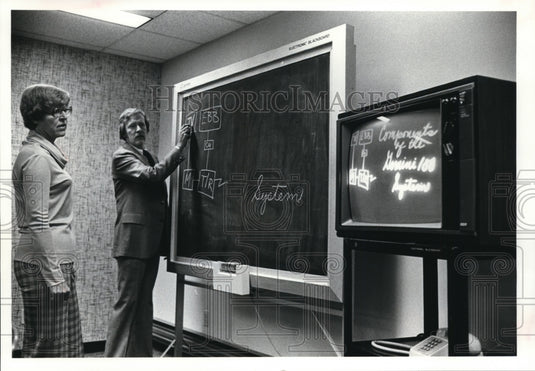 ELECTRONIC BLACKBOARD
HISTORIC IMAGES
TV
EBB
M
TR
System
EBB
M
TR
Components
of the
Gemini 100
System